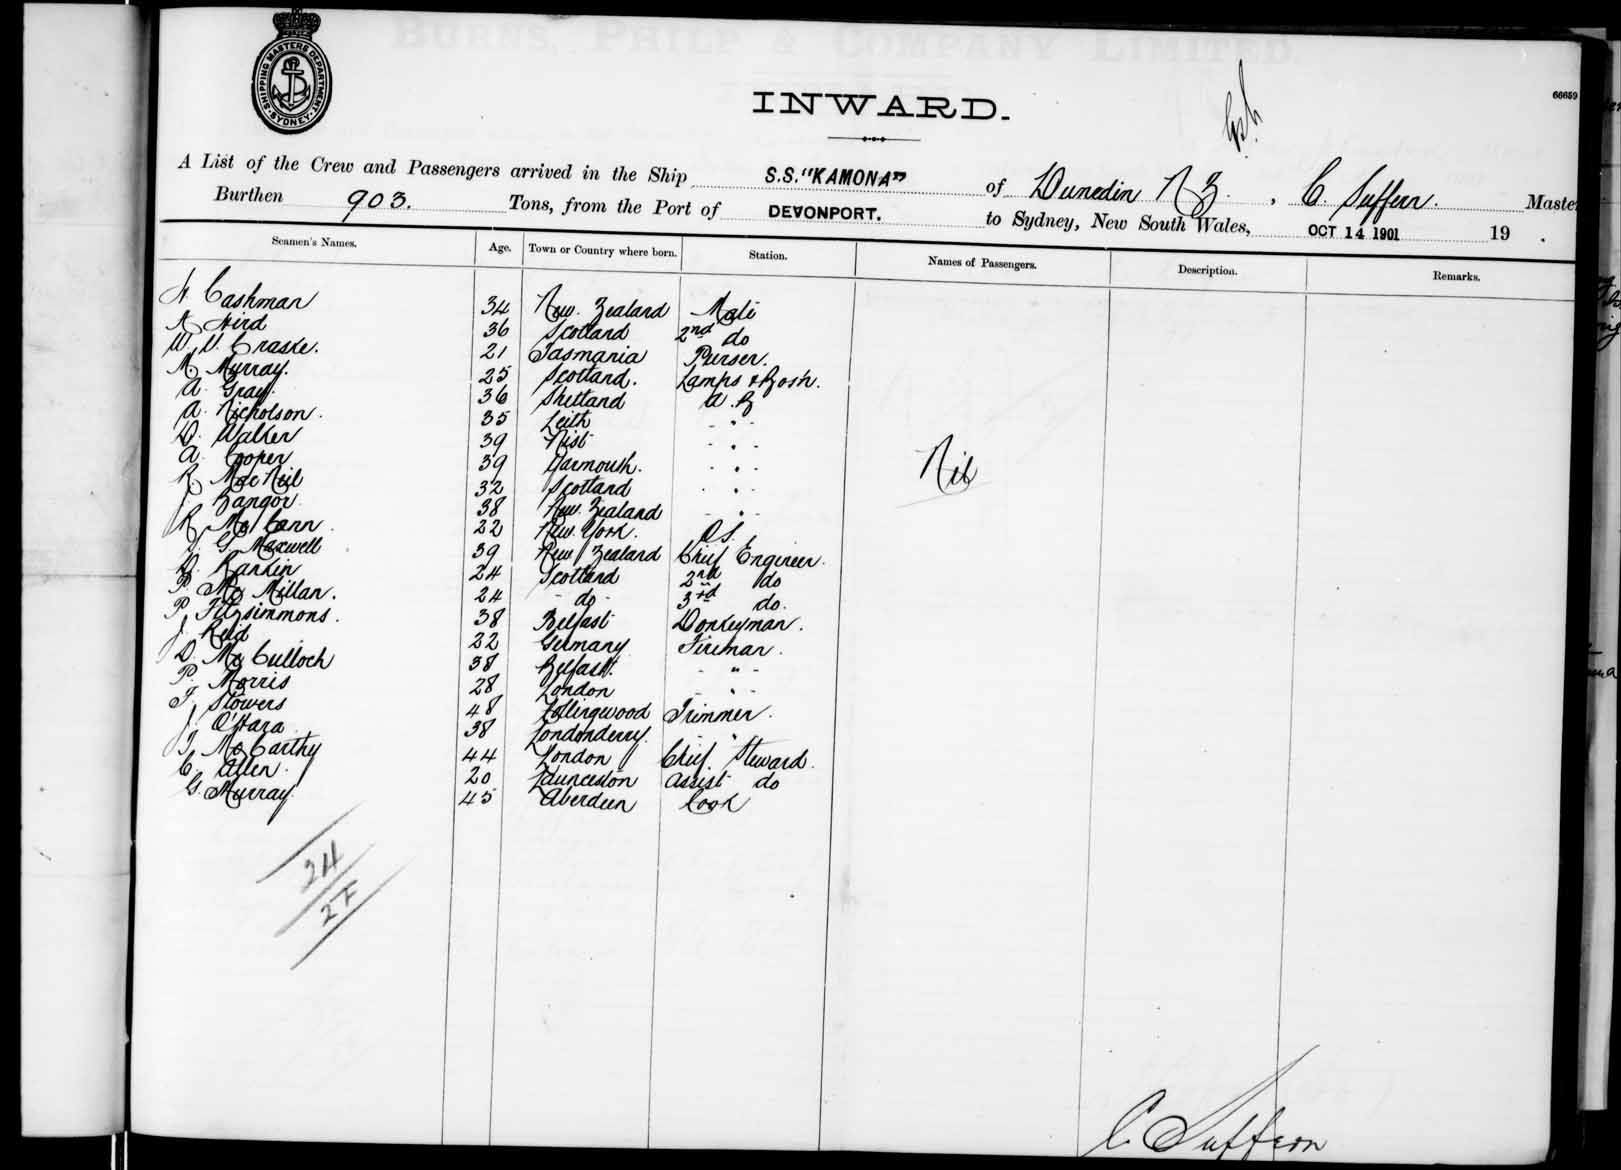 BURNS, PHILP & COMPANY LIMITED
SHIPPING MASTERS DEPARTMENT
SYDNEY
INWARD.
66659
A List of the Crew and Passengers arrived in the Ship S.S. "KAMONA" of Dunedin N Z. , C. Suffern. Master
Burthen 903. Tons, from the Port of DEVONPORT. to Sydney, New South Wales, OCT 14 1901 19 .
Seamen's Names. Age. Town or Country where born. Station. Names of Passengers. Description. Remarks.
Cashman 34 New Zealand Mate
A Hird 36 Scotland 2nd do
W. V. Craske. 21 Tasmania Purser.
M Murray. 25 Scotland. Lamps & Bos'n.
A. Gray. 36 Shetland A. B
A. Nicholson. 35 Leith - " -
D. Walker 39 - " -
A. Cooper 39 Yarmouth. - " -
R MacNeil 32 Scotland - " -
J. Bangor 38 New Zealand - " -
R McCann. 22 New York. O.S.
J. G Maxwell 39 New Zealand Chief Engineer.
D. Rankin 24 Scotland 2nd do
P. McMillan. 24 - do - 3rd do.
P. Fitzsimmons. 38 Belfast Donkeyman.
J. Reid 22 Germany Fireman.
D. McCulloch 38 Belfast. - " -
P. Morris 28 London - " -
F. Stowers 48 Collingwood Trimmer.
J. O'Hara 38 Londonderry. - " -
J. McCarthy 44 London Chief Steward.
C. Allen. 20 Launceston Assist do
G. Murray. 45 Aberdeen Cook
Nil
24
27
C. Suffern